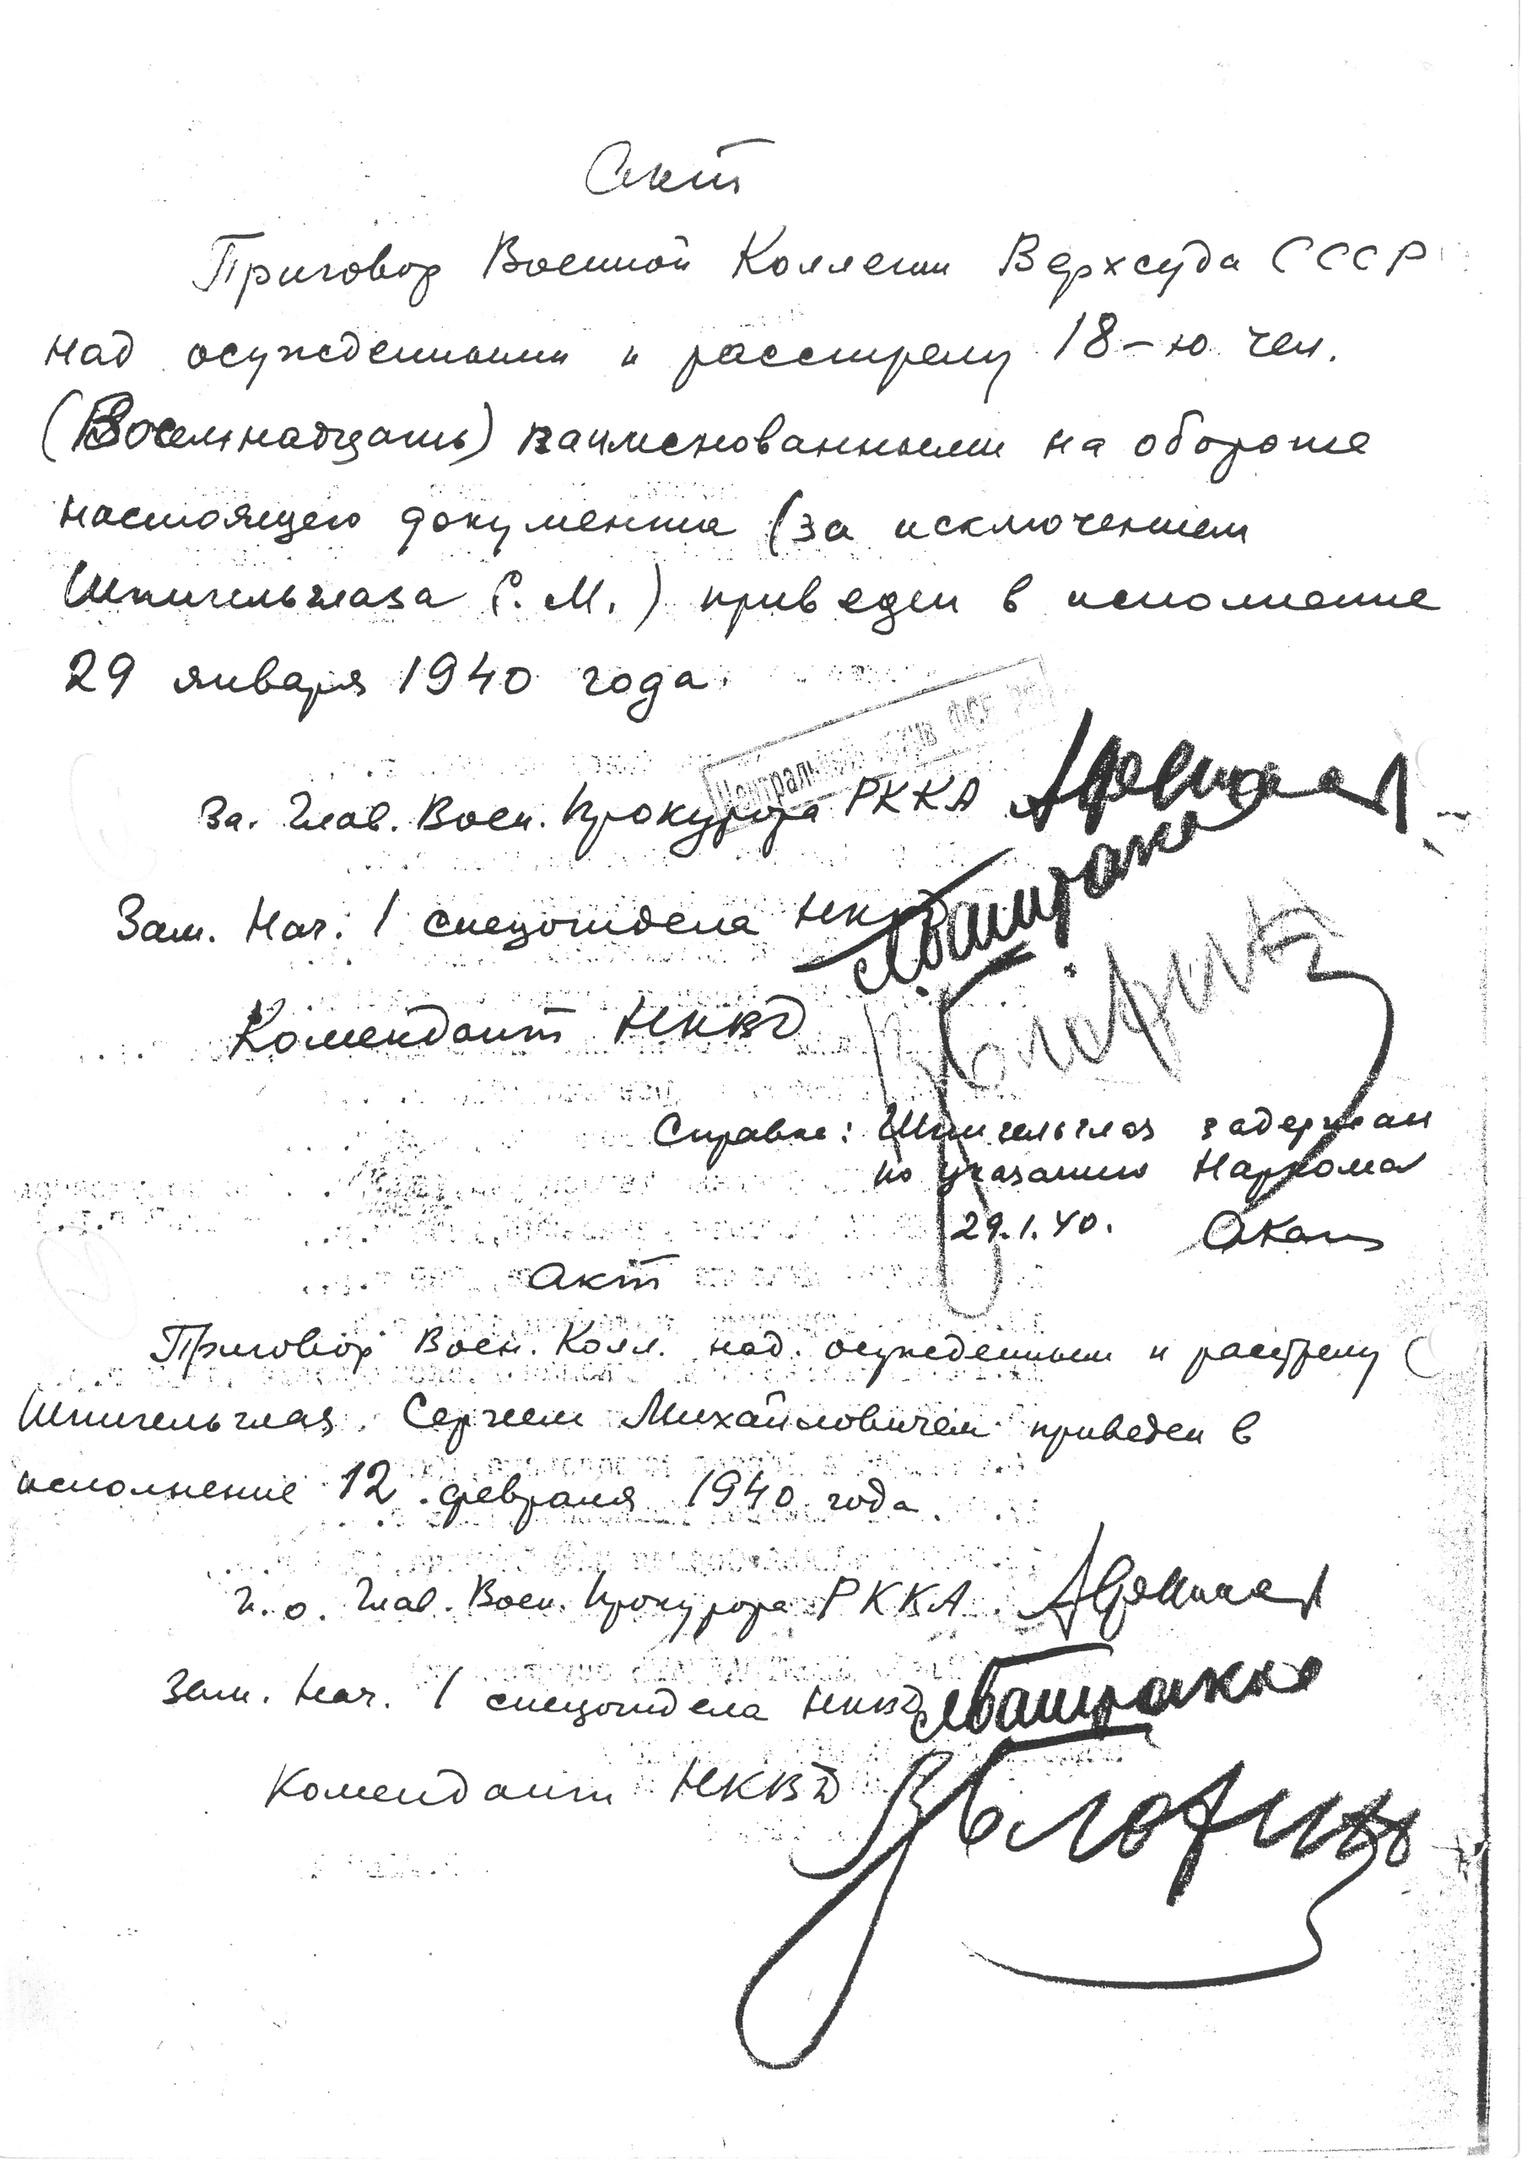 Акт
Приговор Военной Коллегии Верхсуда СССР
над осужденными к расстрелу 18-ю чел.
(Восемнадцать) наименованными на обороте
настоящего документа (за исключением
Шпигельглаза С. М.) приведен в исполнение
29 января 1940 года.
Центральный архив ФСБ РФ
За. Глав. Воен. Прокурора РККА Афанасьев
Зам. Нач. 1 спецотдела НКВД Баштаков
Комендант НКВД В. Блохин
Справка: Шпигельглаз задержан
по указанию Наркома
29.1.40.
Акт
Приговор Воен. Колл. над осужденным к расстрелу
Шпигельглаз Сергеем Михайловичем приведен в
исполнение 12 февраля 1940 года.
И. о. Глав. Воен. Прокурора РККА Афанасьев
Зам. Нач. 1 спецотдела НКВД Баштаков
Комендант НКВД В Блохин